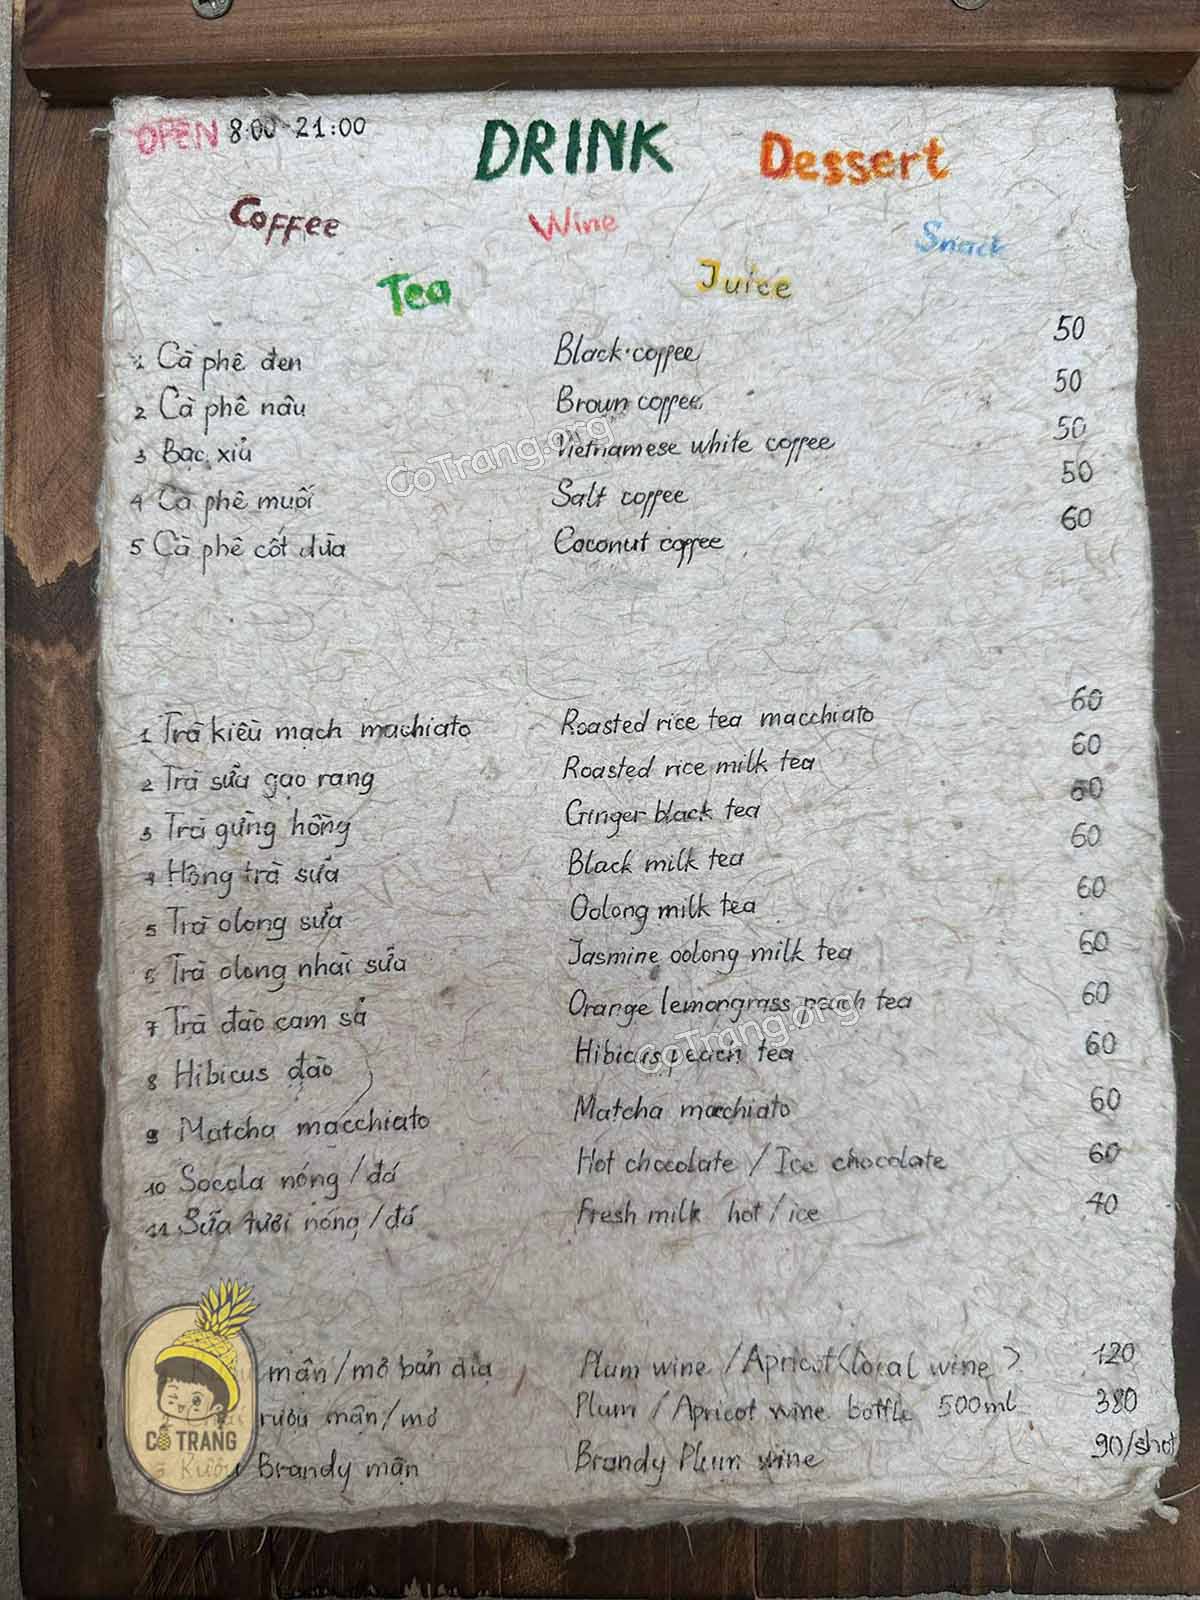 OPEN 8:00-21:00 DRINK Dessert
Coffee Wine Snack
Tea Juice
1 Cà phê đen Black coffee 50
2 Cà phê nâu Brown coffee 50
3 Bạc xỉu Vietnamese white coffee 50
4 Cà phê muối Salt coffee 50
5 Cà phê cốt dừa Coconut coffee 60
CoTrang.org
1 Trà kiều mạch machiato Roasted rice tea macchiato 60
2 Trà sữa gạo rang Roasted rice milk tea 60
3 Trà gừng hồng Ginger black tea 60
4 Hồng trà sữa Black milk tea 60
5 Trà olong sữa Oolong milk tea 60
6 Trà olong nhài sữa Jasmine oolong milk tea 60
7 Trà đào cam sả Orange lemongrass peach tea 60
8 Hibicus đào Hibicus peach tea 60
CoTrang.org
9 Matcha macchiato Matcha macchiato 60
10 Socola nóng/đá Hot chocolate / Ice chocolate 60
11 Sữa tươi nóng/đá Fresh milk hot/ice 40
mận/mơ bản địa Plum wine / Apricot (local wine) 120
rượu mận/mơ Plum / Apricot wine bottle 500ml 380
3 Rượu Brandy mận Brandy Plum wine 90/shot
CÔ TRANG